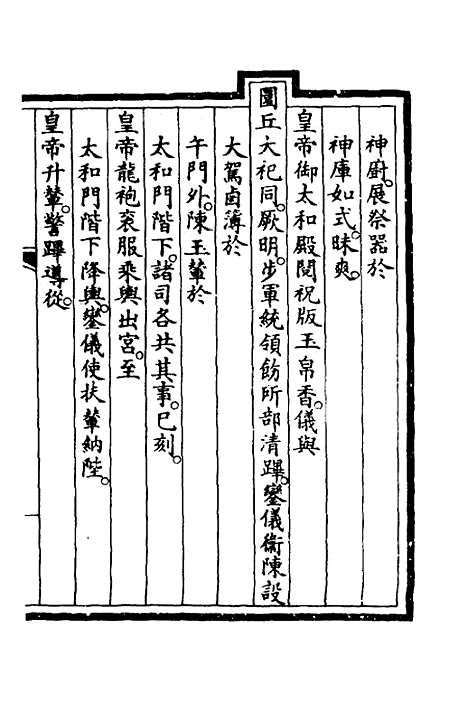 神廚。展祭器於
神庫如式。昧爽。
皇帝御太和殿閱祝版玉帛香。儀與
圜丘大祀同。厥明。步軍統領飭所部清蹕。鑾儀衞陳設
大駕鹵簿於
午門外。陳玉輦於
太和門階下。諸司各共其事。巳刻。
皇帝龍袍袞服乘輿出宮。至
太和門階下降輿。鑾儀使扶輦納陛。
皇帝升輦。警蹕導從。